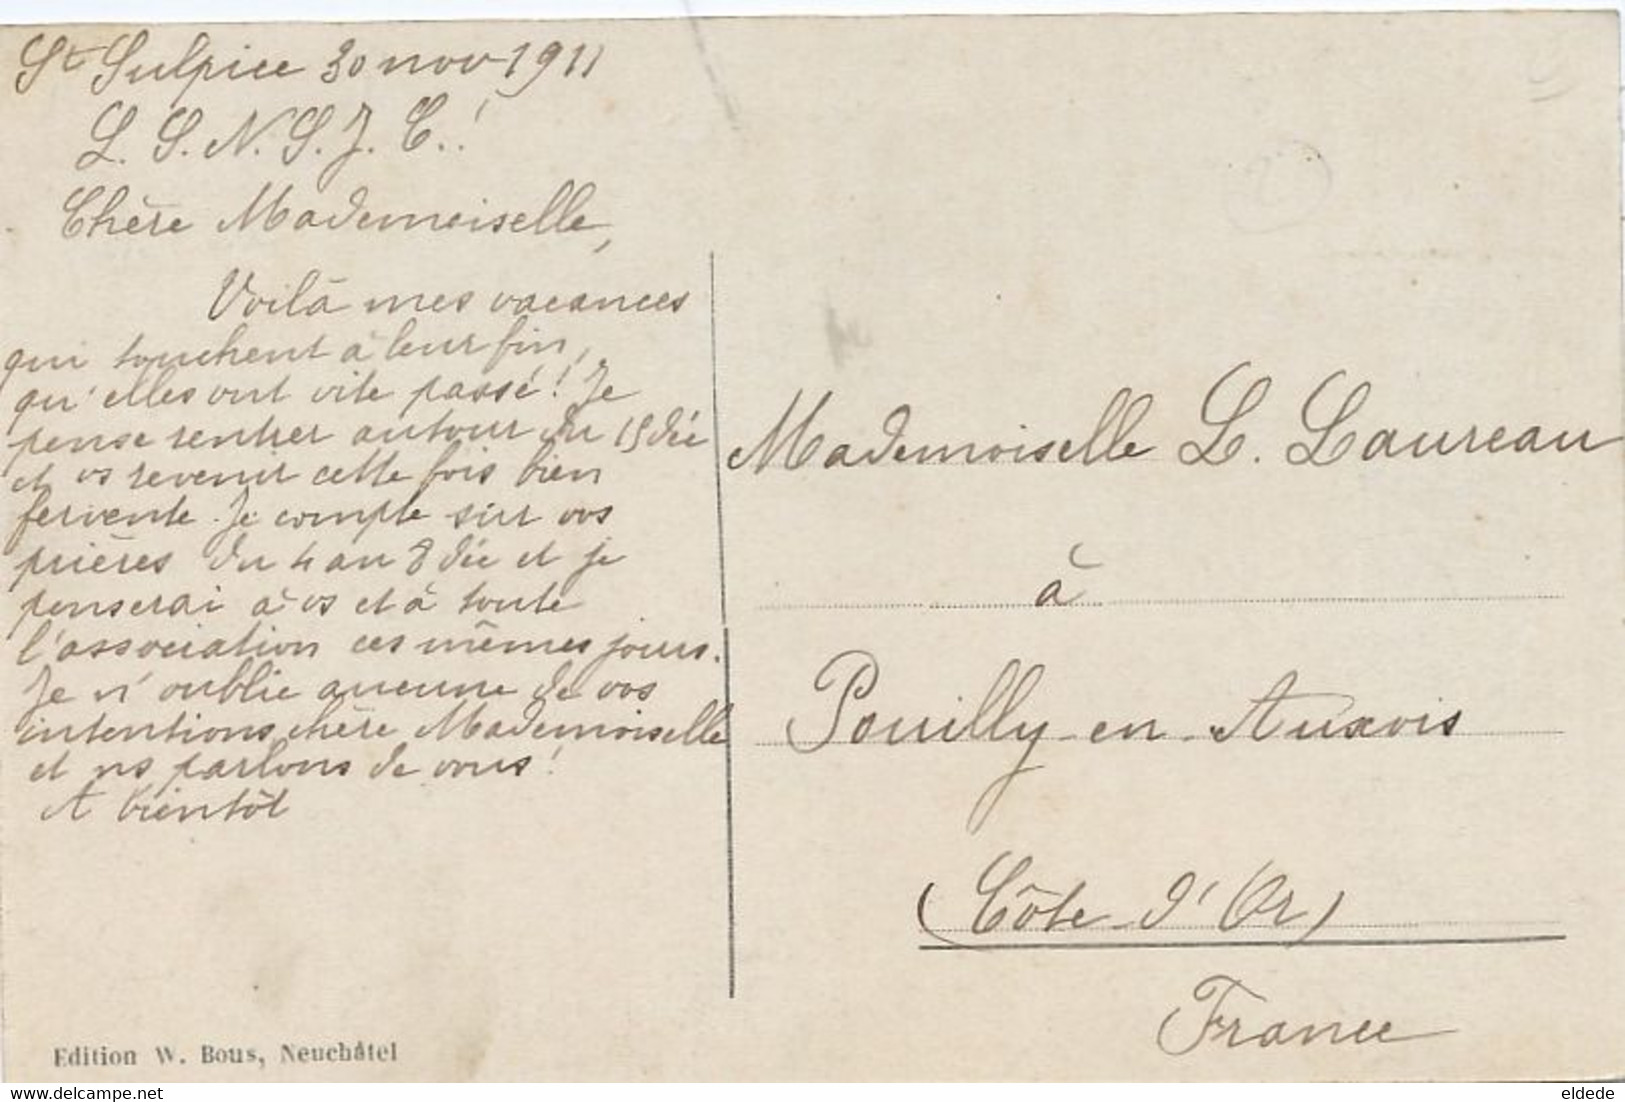 St Sulpice 30 nov 1911
L. S. N. S. J. C.!
Chère Mademoiselle,
Voilà mes vacances
qui touchent à leur fin,
qu'elles ont vite passé! Je
pense rentrer autour du 15 déc
et vs revenir cette fois bien
fervente. Je compte sur vos
prières du 4 au 8 déc et je
penserai à vs et à toute
l'association ces mêmes jours.
Je n'oublie aucune de vos
intentions chère Mademoiselle
et ns parlons de vous!
A bientôt
Mademoiselle L. Laureau
à
Pouilly-en-Auxois
(Côte-d'Or)
France
Edition W. Bous, Neuchâtel
eldede